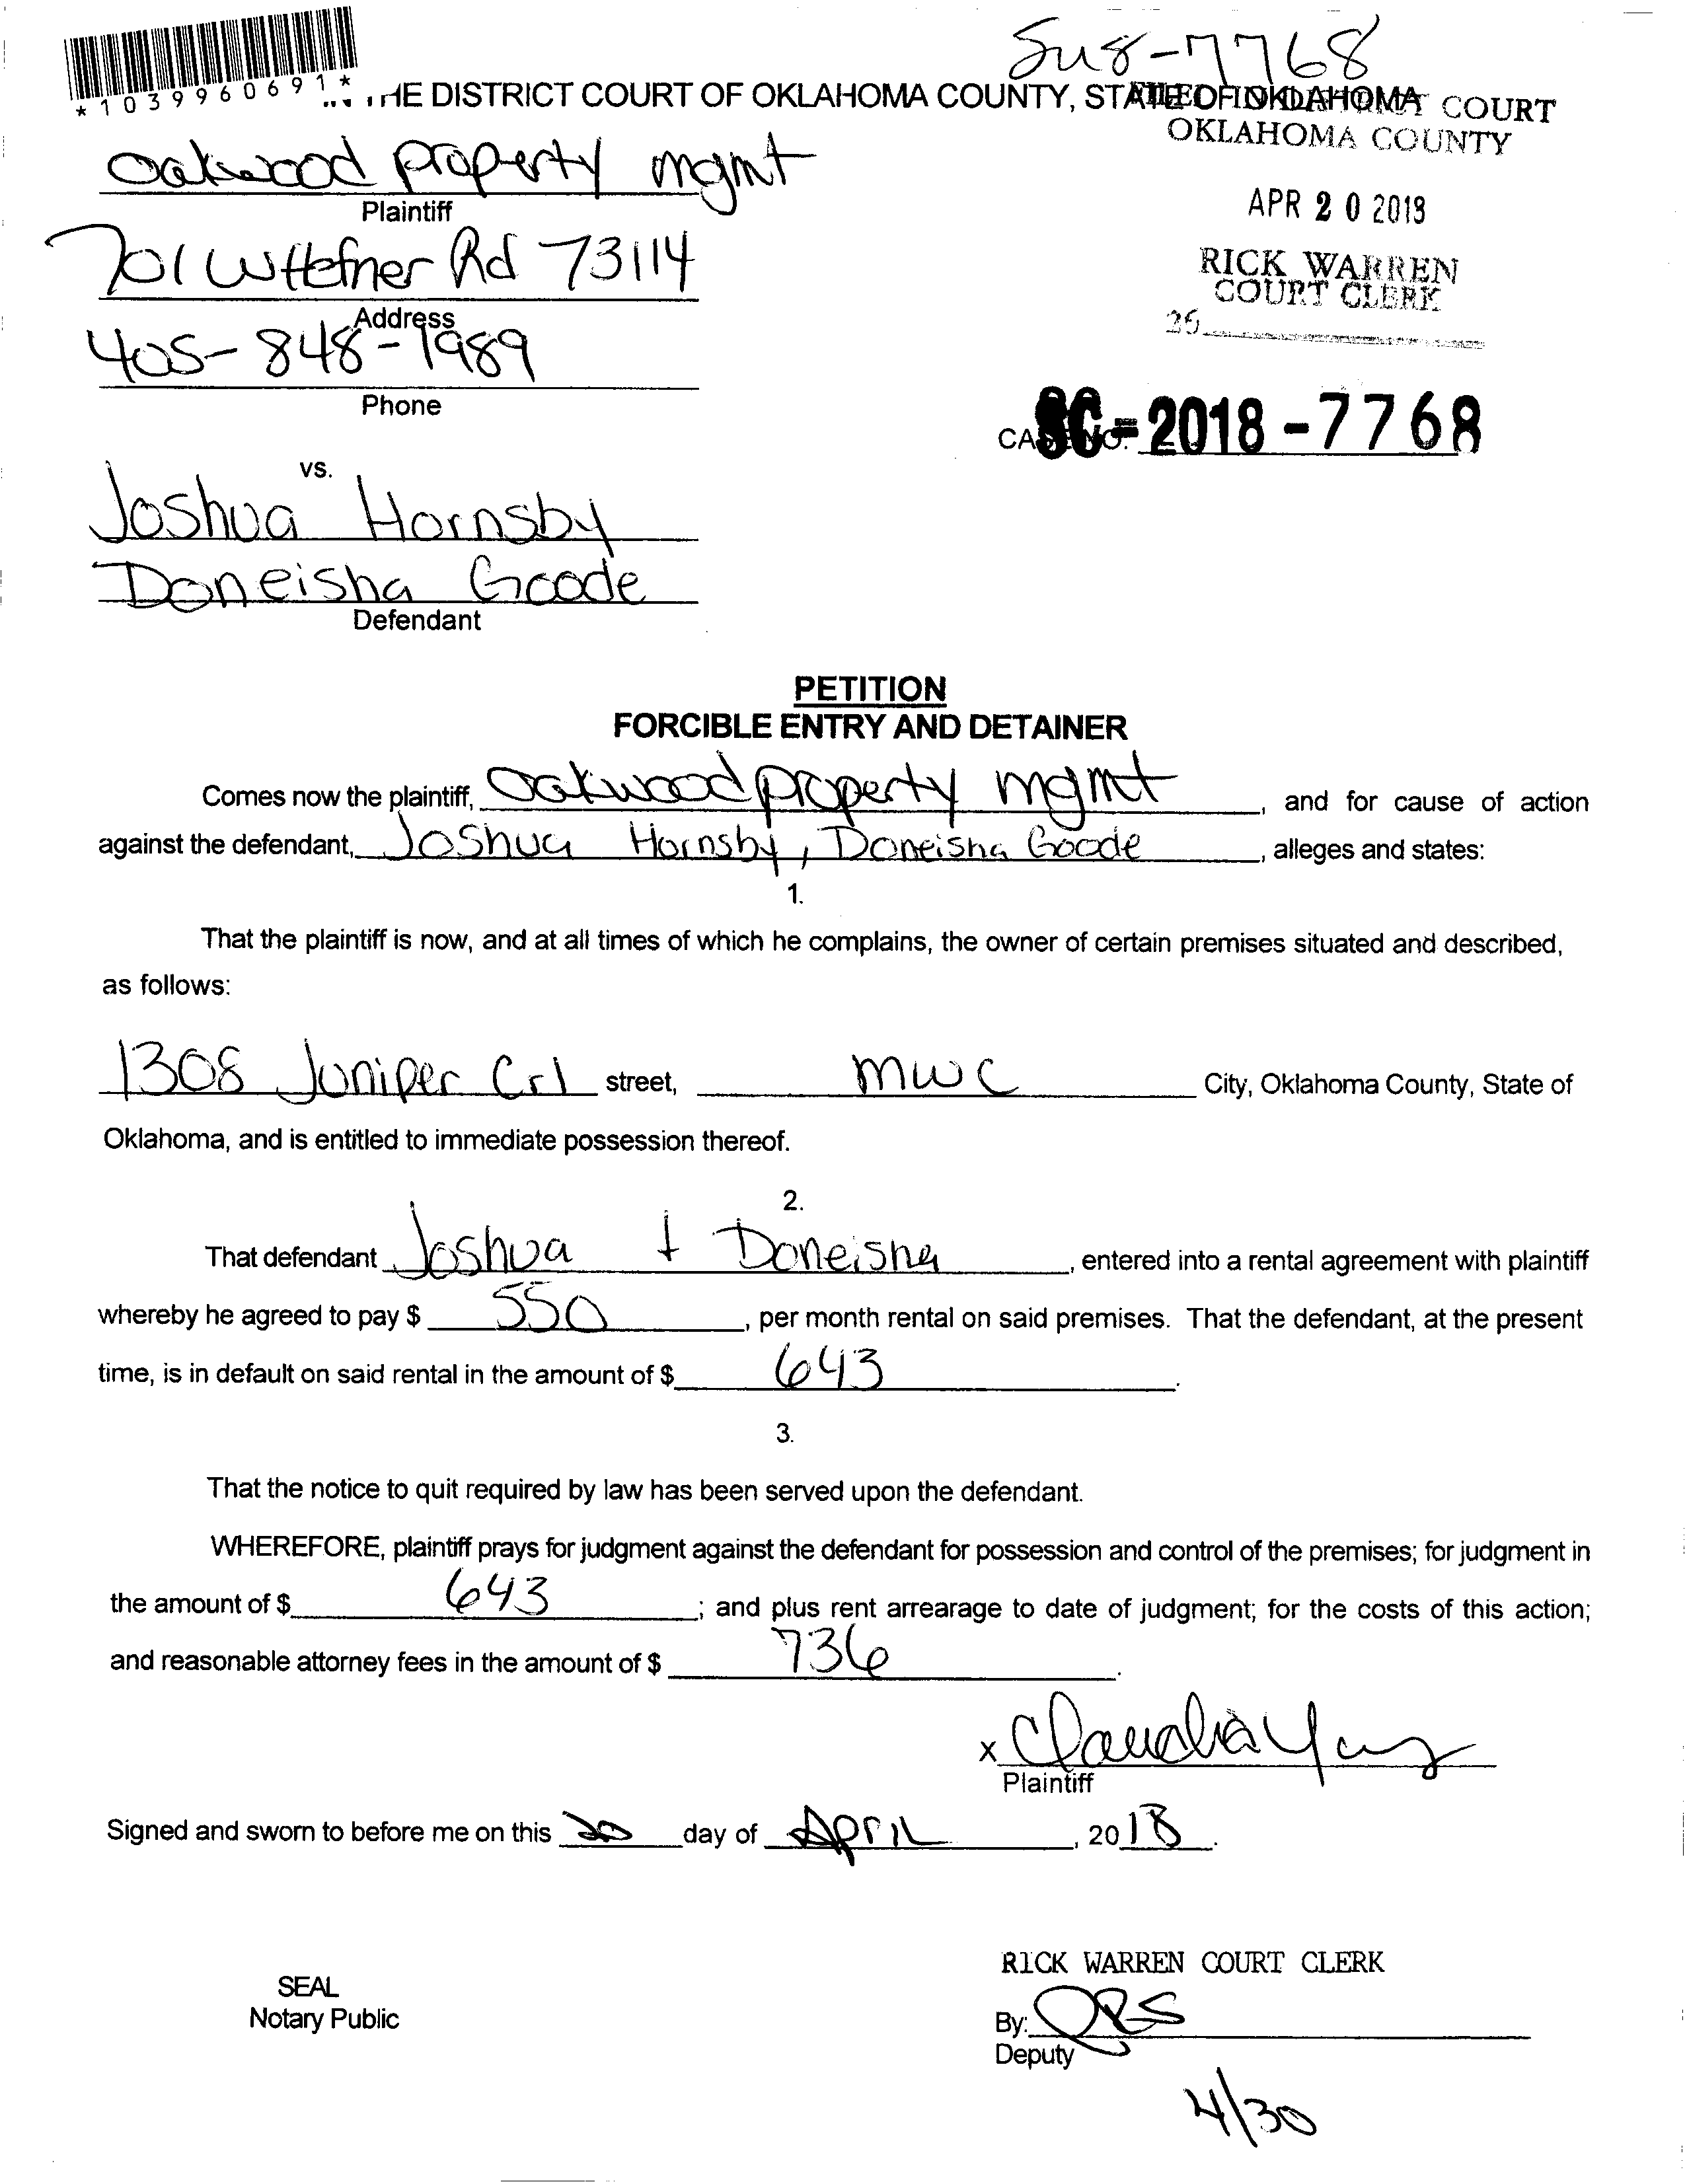 Su8-7768
*1039960691*
THE DISTRICT COURT OF OKLAHOMA COUNTY, STATE OF OKLAHOMA
FILED IN DISTRICT COURT
OKLAHOMA COUNTY
Oakwood property mgmt
Plaintiff
APR 20 2018
701 W Hefner Rd 73114
Address
RICK WARREN
COURT CLERK
405-848-1989
Phone
CASE NO. SC-2018-7768
vs.
Joshua Hornsby
Doneisha Goode
Defendant
PETITION
FORCIBLE ENTRY AND DETAINER
Comes now the plaintiff, Oakwood property mgmt, and for cause of action
against the defendant, Joshua Hornsby, Doneisha Goode, alleges and states:
1.
That the plaintiff is now, and at all times of which he complains, the owner of certain premises situated and described,
as follows:
1308 Juniper Crl street, mwc City, Oklahoma County, State of
Oklahoma, and is entitled to immediate possession thereof.
2.
That defendant Joshua + Doneisha, entered into a rental agreement with plaintiff
whereby he agreed to pay $ 550, per month rental on said premises. That the defendant, at the present
time, is in default on said rental in the amount of $ 643.
3.
That the notice to quit required by law has been served upon the defendant.
WHEREFORE, plaintiff prays for judgment against the defendant for possession and control of the premises; for judgment in
the amount of $ 643; and plus rent arrearage to date of judgment; for the costs of this action;
and reasonable attorney fees in the amount of $ 736.
x Claudia
Plaintiff
Signed and sworn to before me on this 20 day of April, 2018.
RICK WARREN COURT CLERK
SEAL
Notary Public
By:
Deputy
4/30